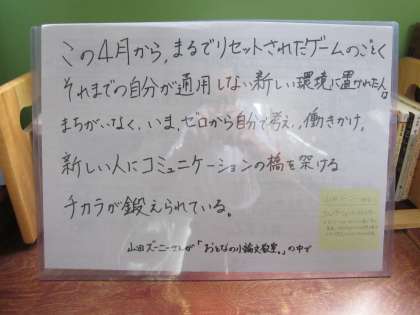 この4月から、まるでリセットされたゲームのごとく
それまでの自分が通用しない新しい環境に置かれた人は
まちがいなく、いま、ゼロから自分で考え、働きかけ。
新しい人にコミュニケーションの橋を架ける
チカラが鍛えられている。
山田ズーニーさんが「おとなの小論文教室。」の中で